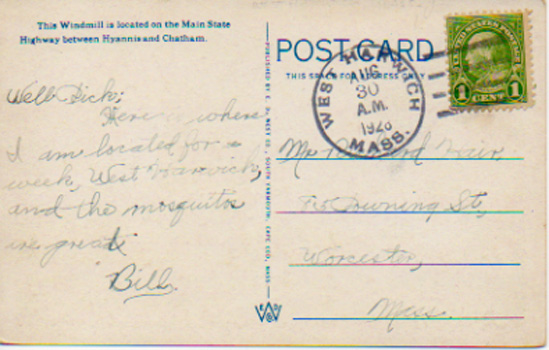 This Windmill is located on the Main State
Highway between Hyannis and Chatham.
Well Dick;
Here is where
I am located for a
week, West Harwich,
and the mosquitos
are great
Bill.
PUBLISHED BY E. D. WEST CO. SOUTH YARMOUTH, CAPE COD, MASS.
POST CARD
THIS SPACE FOR ADDRESS ONLY
WEST HARWICH
AUG
30
A.M.
1928
MASS.
UNITED STATES POSTAGE
1 CENT 1
Mr.
Downing St.,
Worcester,
Mass.